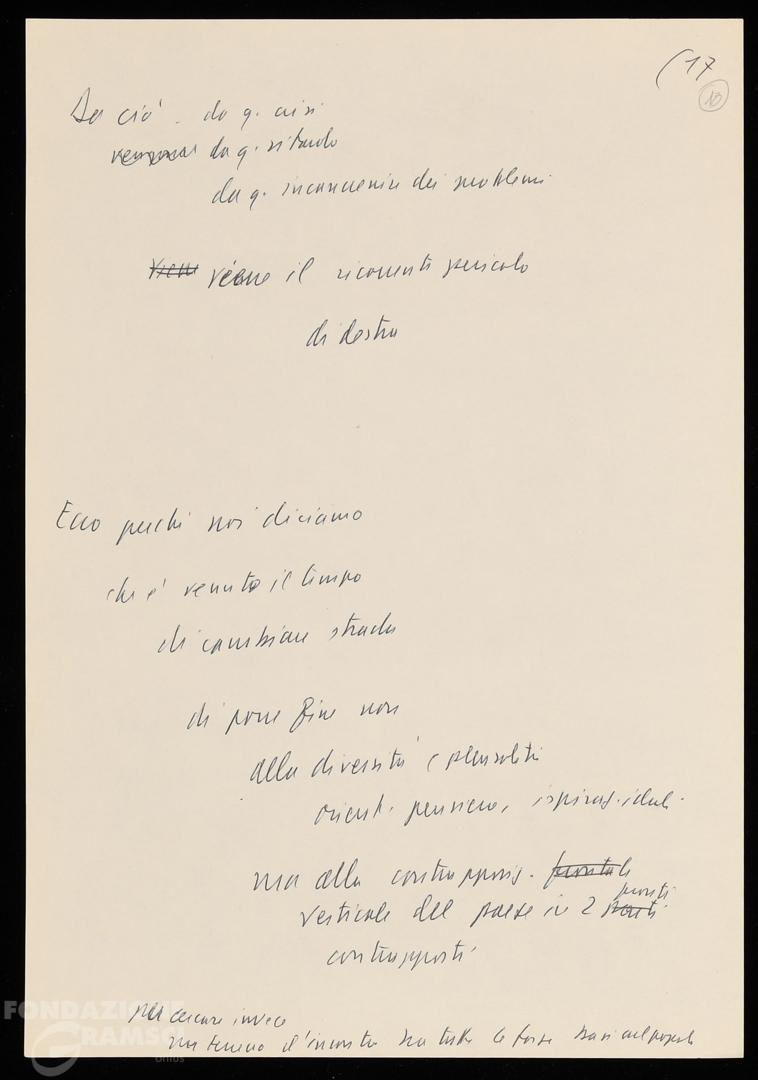 (17
10
Da ciò - da q. crisi
da q. ritardo
da q. incancrenirsi dei problemi
Viene viene il ricorrente pericolo
di destra
Ecco perché noi diciamo
che è venuto il tempo
di cambiare strada
di porre fine non
alla diversità e pluralità
orient. pensiero, ispiraz. ideali.
ma alla contrapposiz. frontale
verticale del paese in 2 fronti
contrapposti
per cercare invece
un terreno d'incontro tra tutte le forze
FONDAZIONE
GRAMSCI
onlus